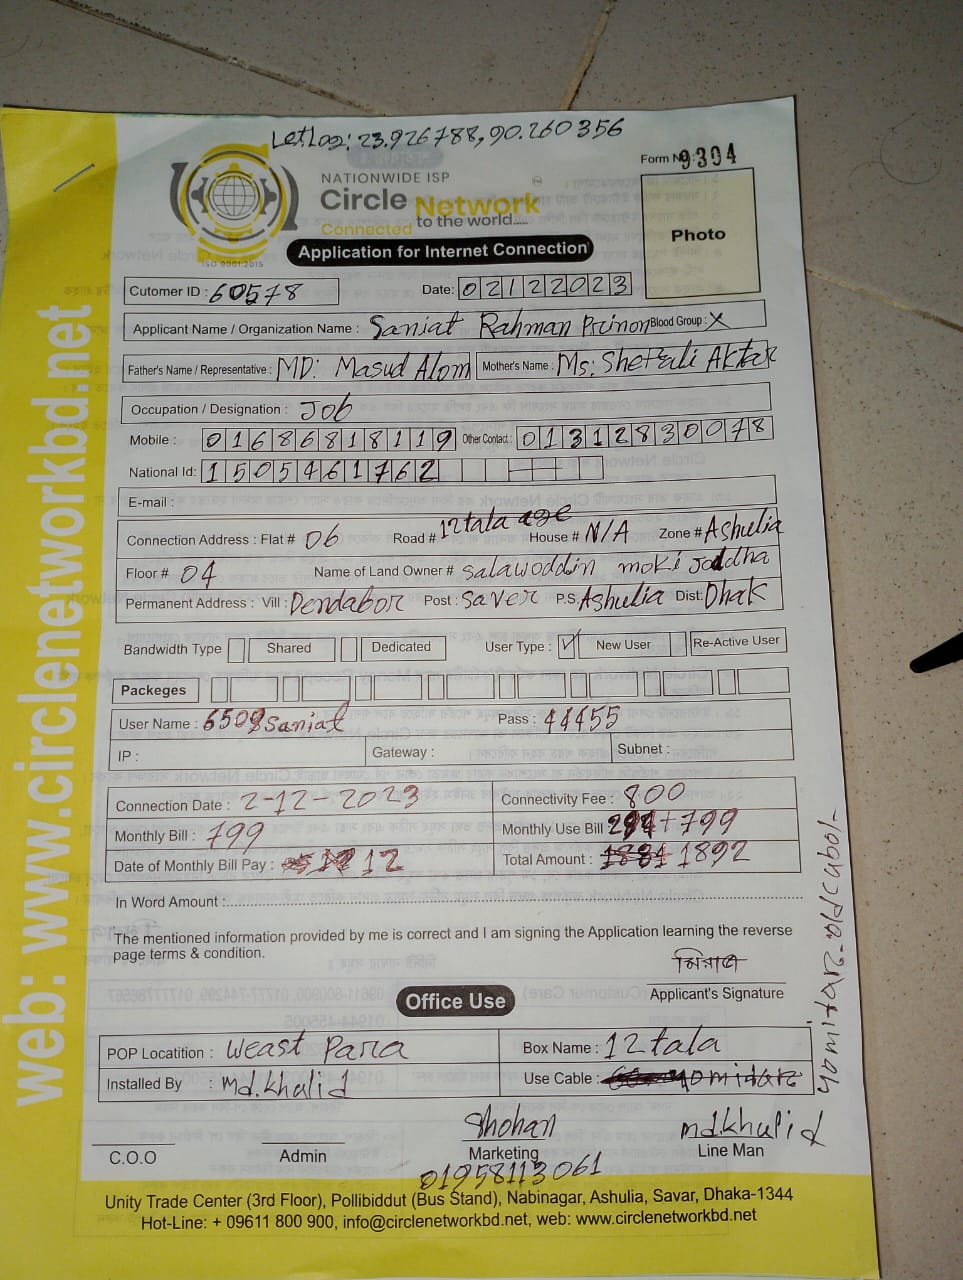 Letlog: 23.926788, 90.260356
Form No 9304
NATIONWIDE ISP
Circle Network
Connected to the world.....
ISO 9001:2015
Application for Internet Connection
Photo
Cutomer ID : 60578 Date: 02122023
Applicant Name / Organization Name : Saniat Rahman Prinon Blood Group : X
Father's Name / Representative : MD: Masud Alom Mother's Name : Ms: Shefali Aktar
Occupation / Designation : Job
Mobile : 01686818119 Other Contact : 01312830078
National Id: 1505461762
E-mail :
Connection Address : Flat # 06 Road # 12tala age House # N/A Zone # Ashulia
Floor # 04 Name of Land Owner # Salawoddin moki Joddha
Permanent Address : Vill : Dendabor Post : Saver P.S. Ashulia Dist: Dhak
Bandwidth Type Shared Dedicated User Type : ✓ New User Re-Active User
Packeges
User Name : 6509Saniat Pass : 44455
IP : Gateway : Subnet :
Connection Date : 2-12-2023 Connectivity Fee : 800
Monthly Bill : 799 Monthly Use Bill +799
Date of Monthly Bill Pay : 12 Total Amount : 1892
In Word Amount :
The mentioned information provided by me is correct and I am signing the Application learning the reverse
page terms & condition.
Applicant's Signature
Office Use
POP Locatition : Weast Para Box Name : 12tala
Installed By : Md.Khalid Use Cable :
Shohan md.khalid
C.O.O Admin Marketing Line Man
01958113061
Unity Trade Center (3rd Floor), Pollibiddut (Bus Stand), Nabinagar, Ashulia, Savar, Dhaka-1344
Hot-Line: + 09611 800 900, info@circlenetworkbd.net, web: www.circlenetworkbd.net
web: www.circlenetworkbd.net